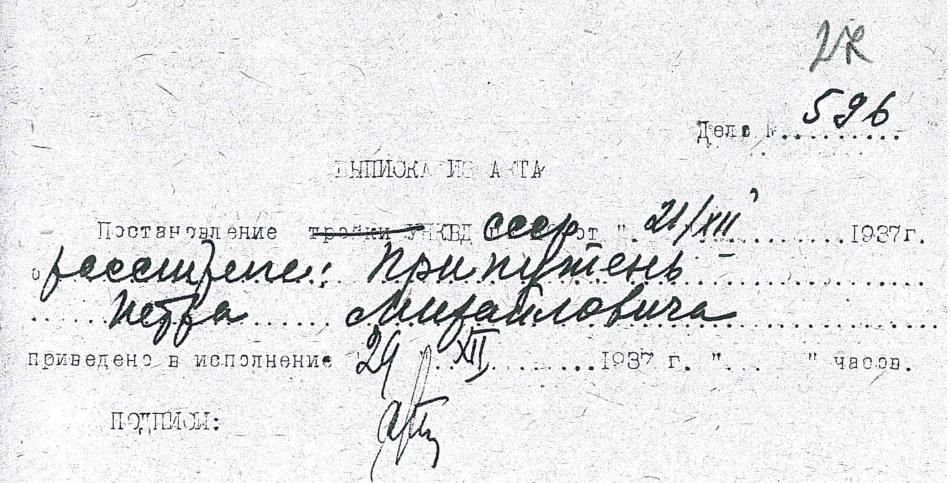 Дело №..596
ВЫПИСКА ИЗ АКТА
Постановление тройки УНКВД СССР от "21/XII" 1937г.
о расстреле: Припутень
Петра Михайловича
приведено в исполнение 29 XII 1937 г. "... " часов.
ПОДПИСИ: